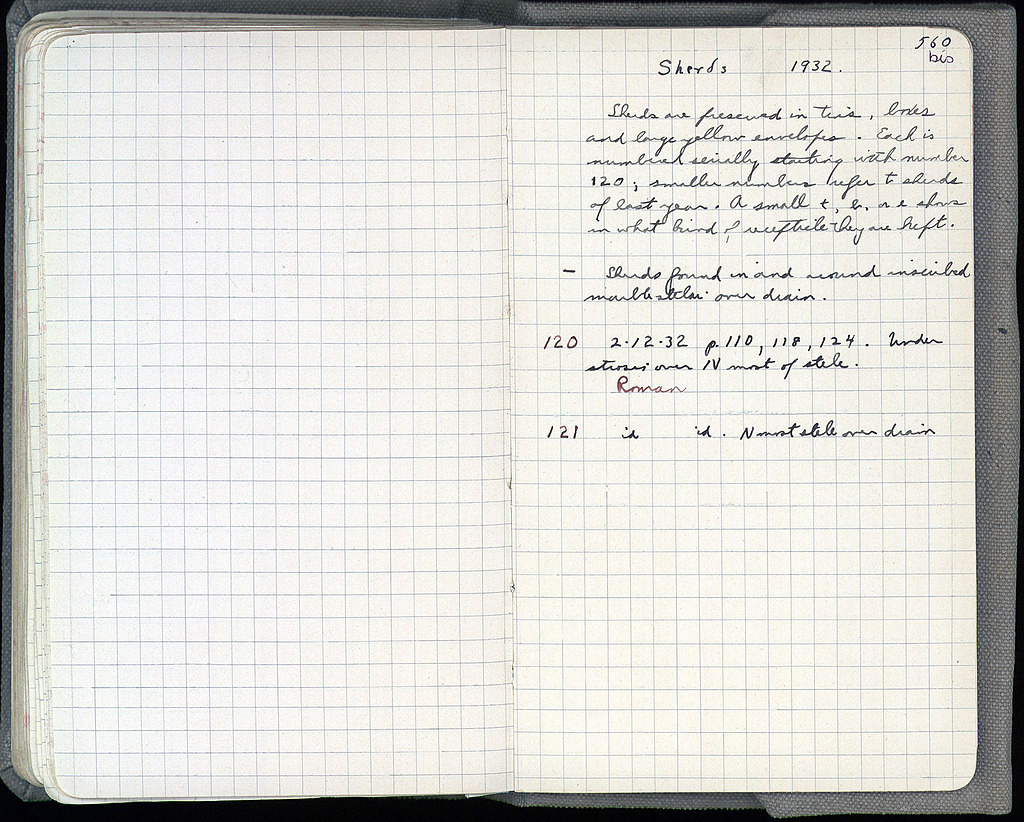 560
bis
Sherds 1932.
Sherds are preserved in tins, boxes
and large yellow envelopes. Each is
numbered serially starting with number
120; smaller numbers refer to sherds
of last year. A small t, b, or e shows
in what kind of receptacle they are kept.
– Sherds found in and around inscribed
marble stelai over drain.
120 2·12·32 p. 110, 118, 124. Under
stroses over N most of stele.
Roman
121 id id. N most stele over drain